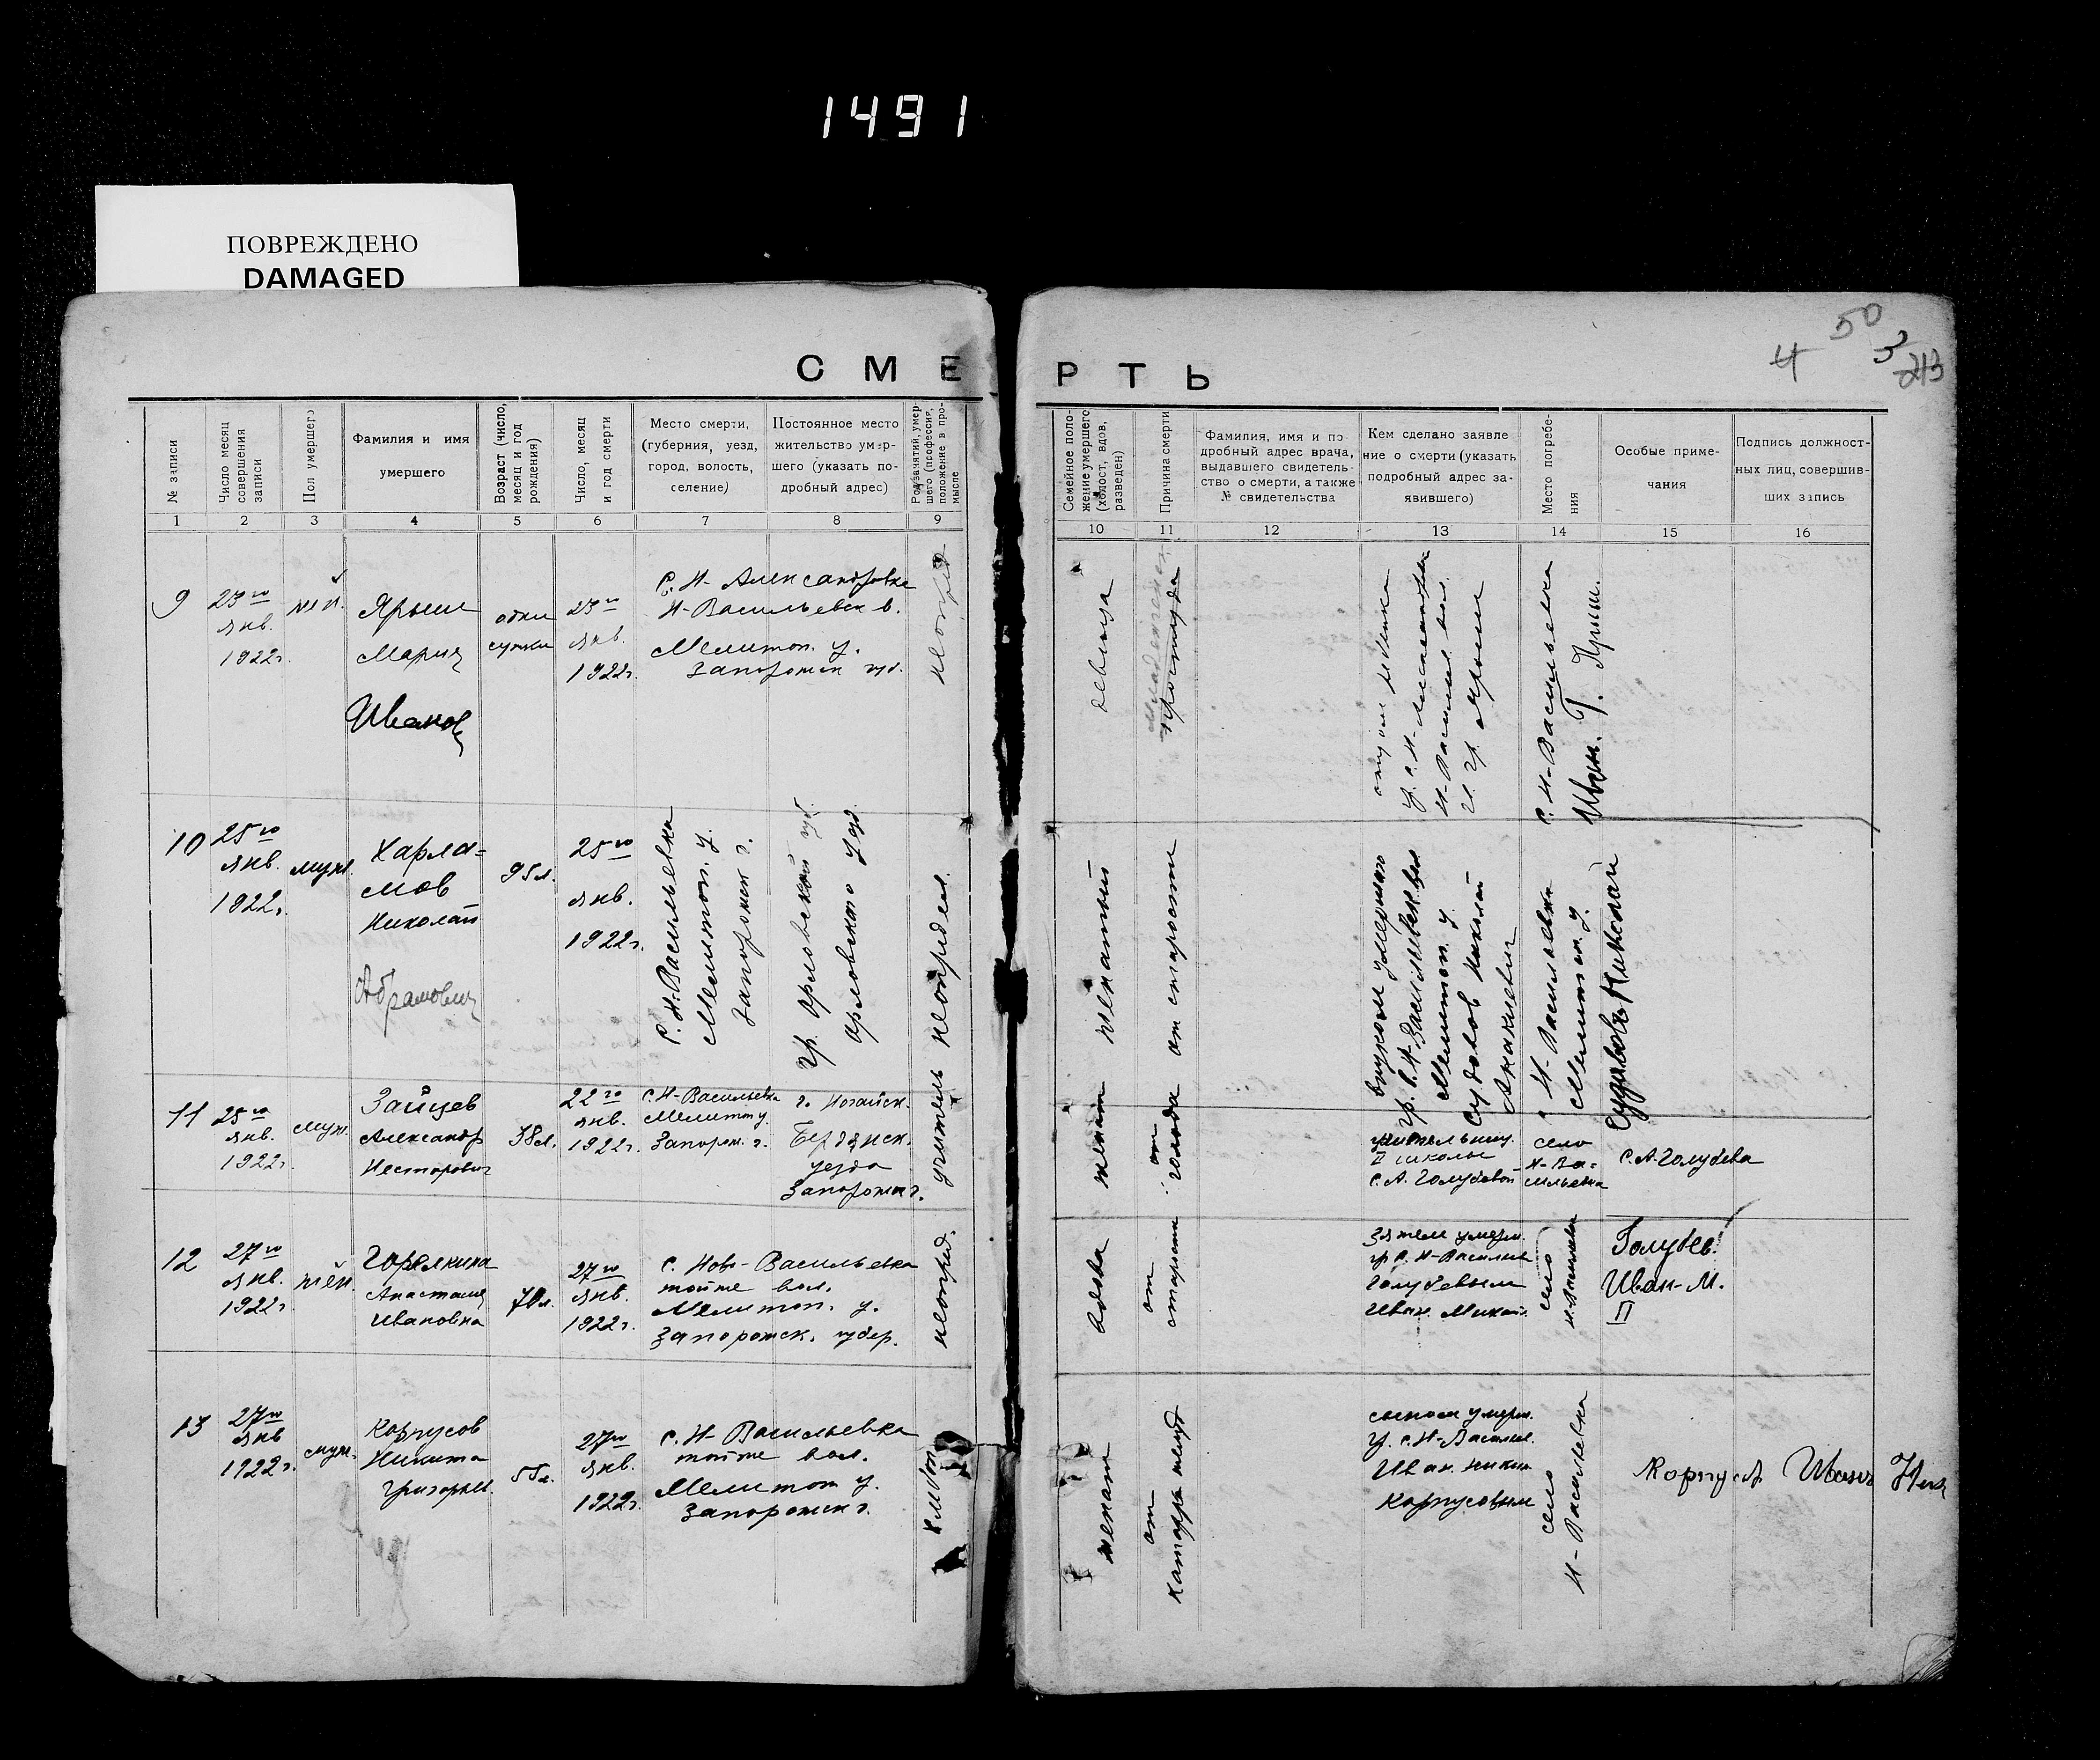 1491
ПОВРЕЖДЕНО
DAMAGED
СМЕРТЬ
50
4
3
213
№ записи
Число месяц
совершения
записи
Пол умершего
Фамилия и имя
умершего
Возраст (число,
месяц и год
рождения)
Число, месяц
и год смерти
Место смерти,
(губерния, уезд,
город, волость,
селение)
Постоянное место
жительство умер-
шего (указать по-
дробный адрес)
Род занятий, умер-
шего (профессия,
положение в про-
мысле
Семейное поло-
жение умершего
(холост, вдов,
разведен)
Причина смерти
Фамилия, имя и по
дробный адрес врача,
выдавшего свидетель-
ство о смерти, а также
№ свидетельства
Кем сделано заявле
ние о смерти (указать
подробный адрес за-
явившего)
Место погребе-
ния
Особые приме-
чания
Подпись должност-
ных лиц, совершив-
ших запись
1 2 3 4 5 6 7 8 9 10 11 12 13 14 15 16
9
23го
янв.
1922г.
Ярыш
Мария
Иванов
одни
сутки
23го
янв.
1922г.
С. Н-Александровка
Н-Васильевск в.
Мелитоп. у.
Запорожск губ.
неопред
девица
Младенческая
простуда
отцом
гр. с. Н-Александровки
Н-Василь. вол.
И. Гр. Ярыш
С. Н-Васильевка
Иван. Г. Ярыш.
10
25го
янв.
1922г.
муж.
Харла=
мов
Николай
Абрамович
95л.
25го
янв.
1922г.
С. Н-Васильевка
Мелитоп. у.
Запорожск г.
гр. Орловской губ.
Орловского уезд.
неопредел.
женатый
от старости
внуком умершего
гр. С. Н-Васильевск. вол
Мелитоп. у.
Судавов Николай
Акакиевич
с Н-Васильевка
Мелитоп. у.
Судавовъ Николай
11
25го
янв.
1922г.
муж.
Зайцев
Александр
Несторович
38л.
22го
янв.
1922г.
с. Н-Васильевка
Мелитоп у
Запорож. г.
г. Ногайск.
Бердянск.
уезда
Запорожск г.
учитель
женат
от
голода
учительниц.
II школы
С. А. Голубевой
село
Н-Ва=
сильевка
С. А. Голубева
12
27го
янв.
1922г.
жен.
Горелкина
Анастасия
Ивановна
70л.
27го
янв.
1922г.
с. Ново-Васильевка
тойже вол.
Мелитоп. у.
Запорожск. губер.
неопред.
вдова
от
старости
Зятем умерш.
гр с. Н-Василье
Голубевым
Иван. Михайл.
село
Н. Васильевка
Голубев.
Иван-М.
II
13
27го
янв
1922г.
муж.
Корпусов
Никита
Григорьев.
55л.
27го
янв.
1922г.
с. Н-Васильевка
тойже вол.
Мелитоп у.
Запорожск г.
хлебоп
женат
от
катарра желуд
сыном умерш.
гр. с. Н-Василье.
Иван. Никит
Корпусовым
село
Н-Васильевка
Корпусов Иванъ Ник